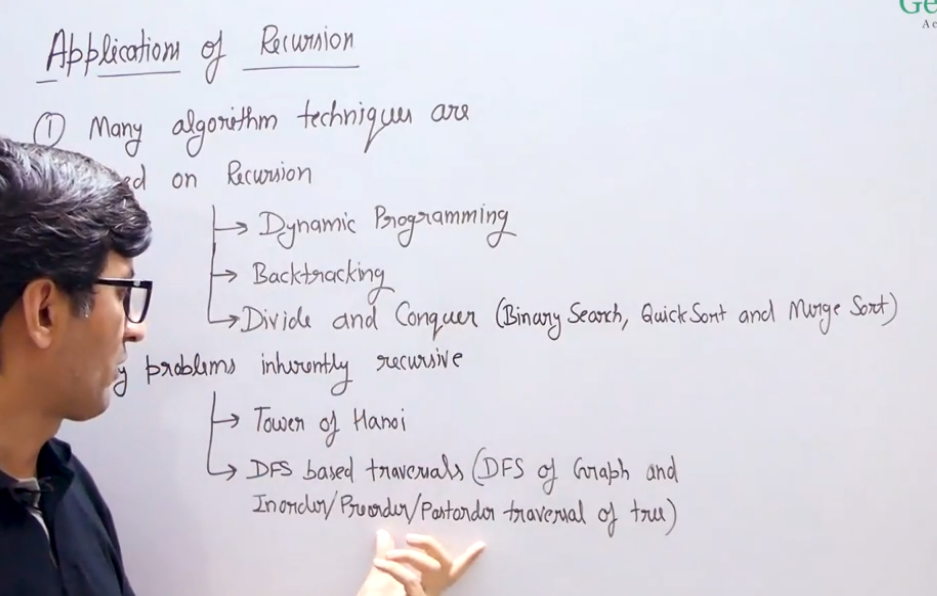 Ge
Ac
Application of Recursion
① Many algorithm techniques are
ed on Recursion
→ Dynamic Programming
→ Backtracking
→ Divide and Conquer (Binary Search, Quick Sort and Merge Sort)
y problems inherently recursive
→ Tower of Hanoi
→ DFS based traversals (DFS of Graph and
Inorder/Preorder/Postorder traversal of tree)